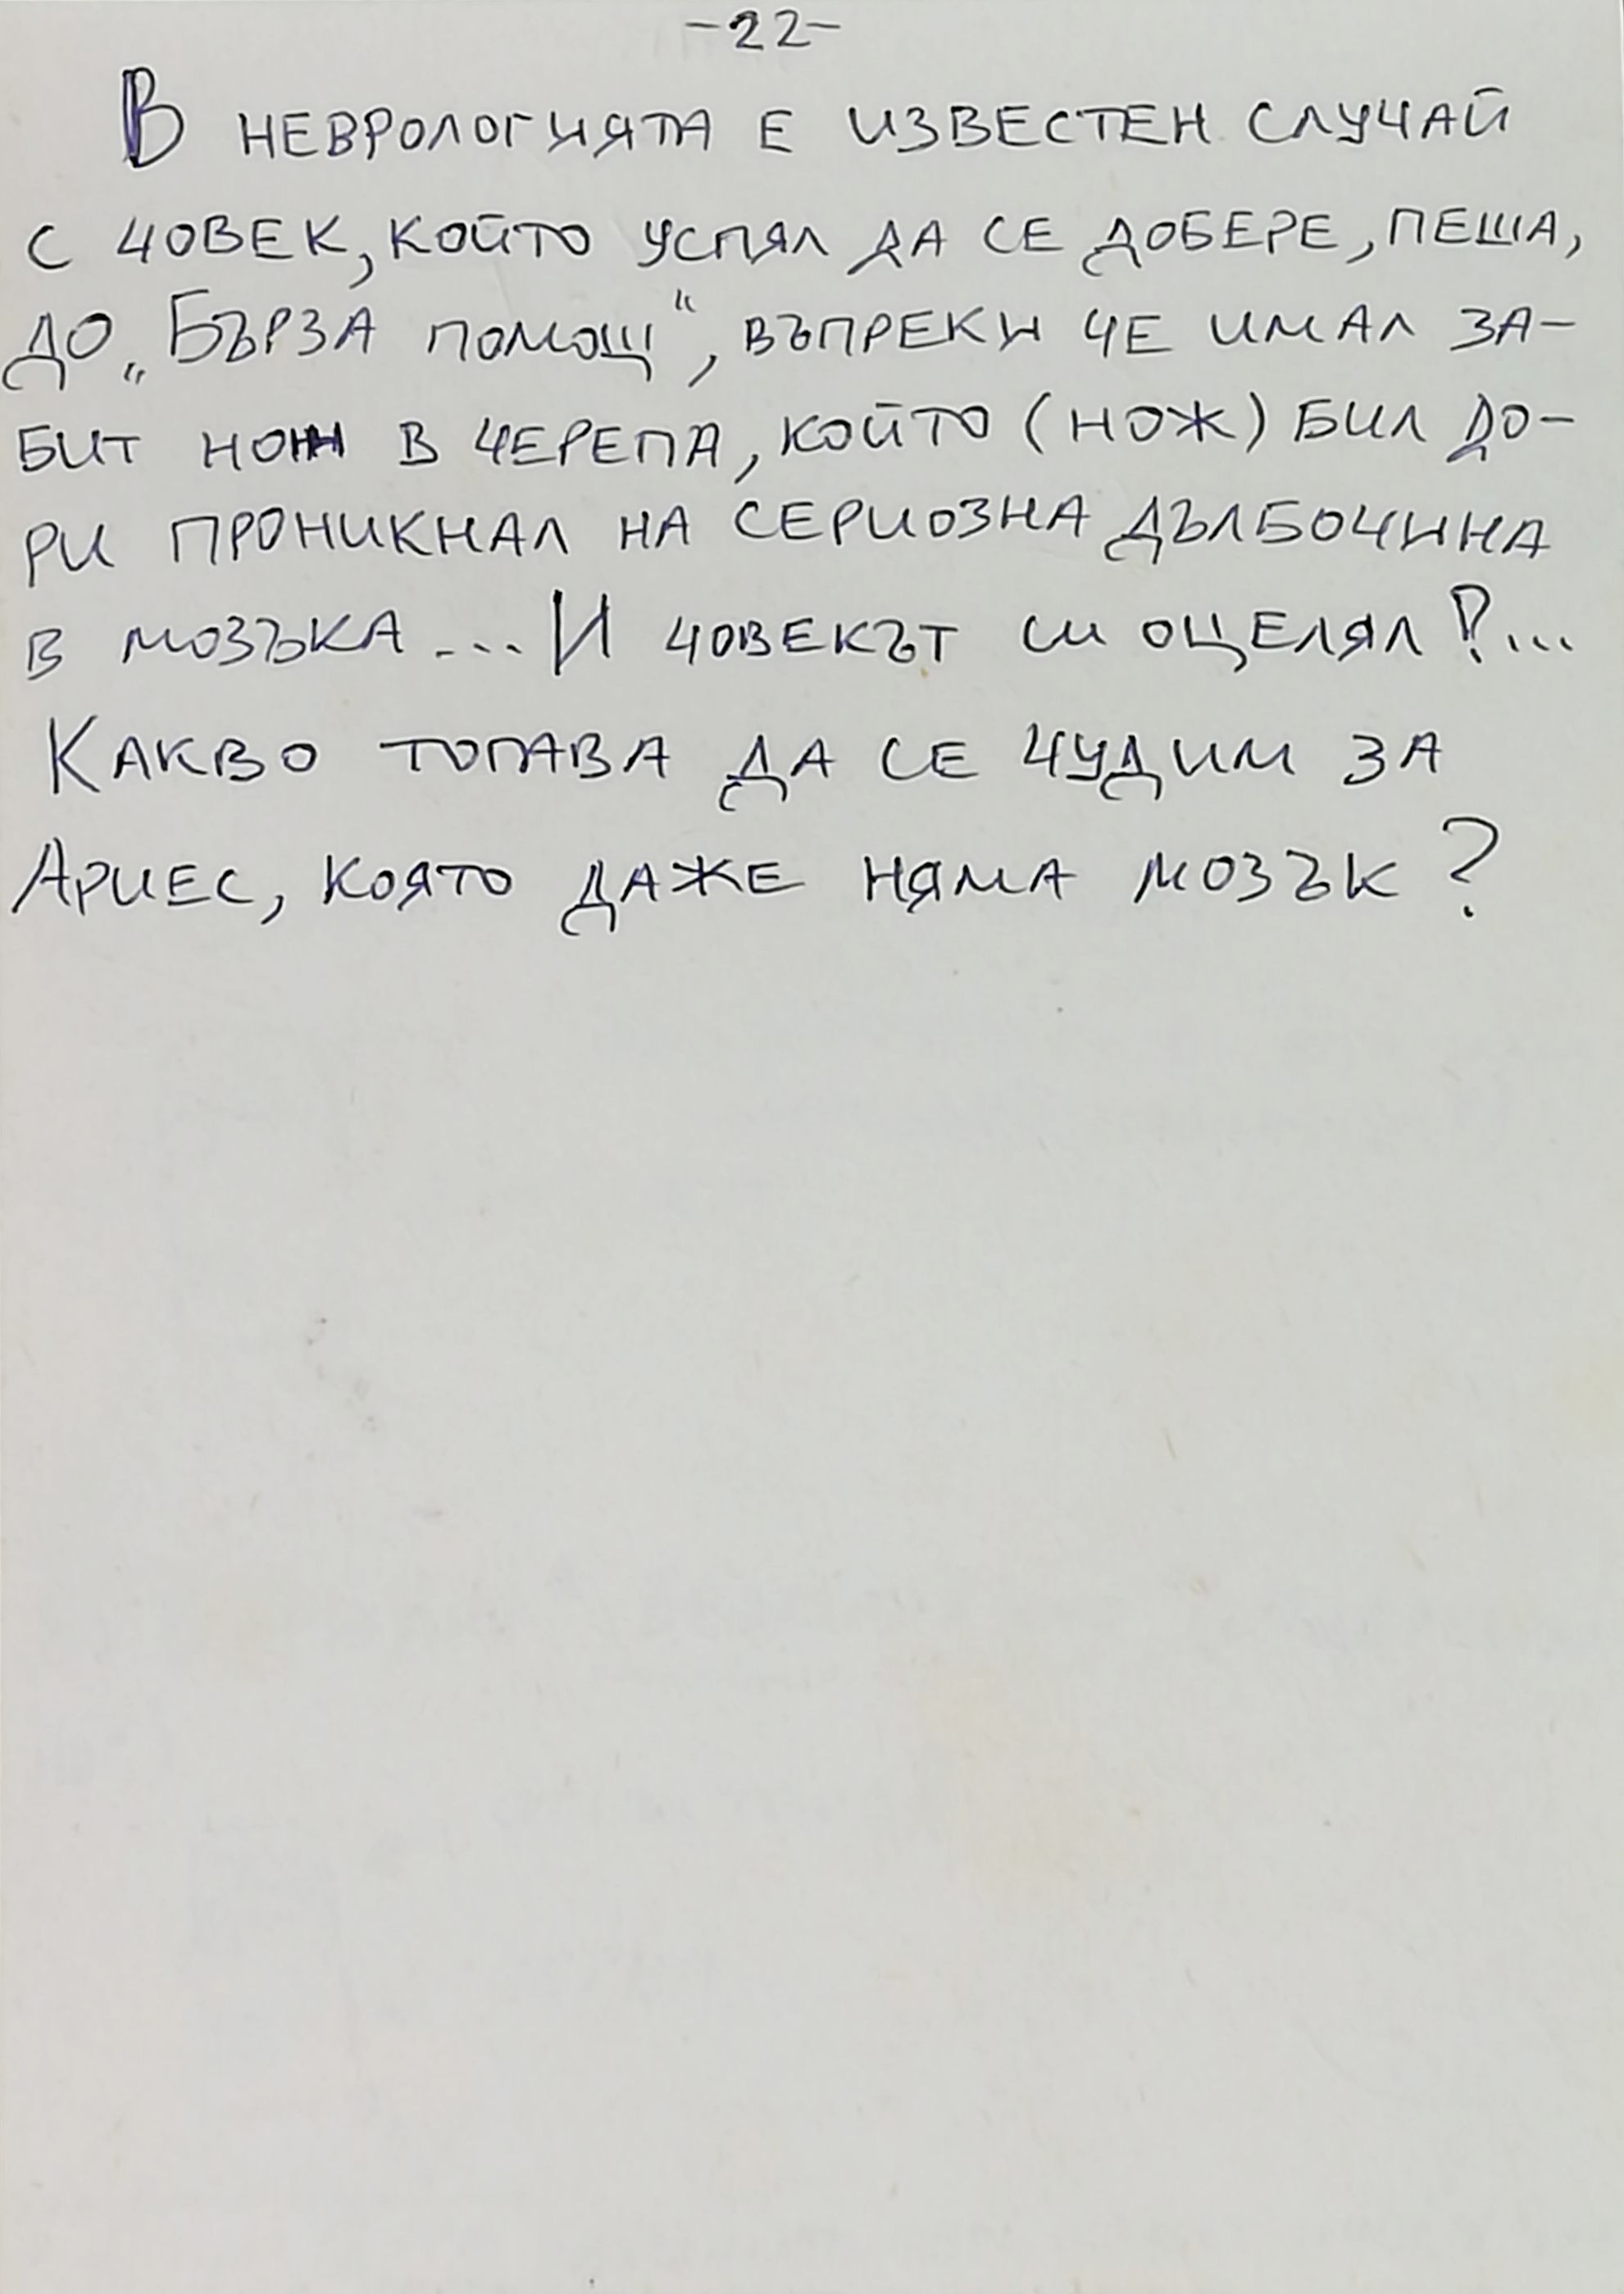 -22-
В неврологията е известен случай
с човек, който успял да се добере, пеша,
до „Бърза помощ“, въпреки че имал за-
бит нож в черепа, който (нож) бил до-
ри проникнал на сериозна дълбочина
в мозъка... И човекът си оцелял!?...
Какво тогава да се чудим за
Ариес, която даже няма мозък?